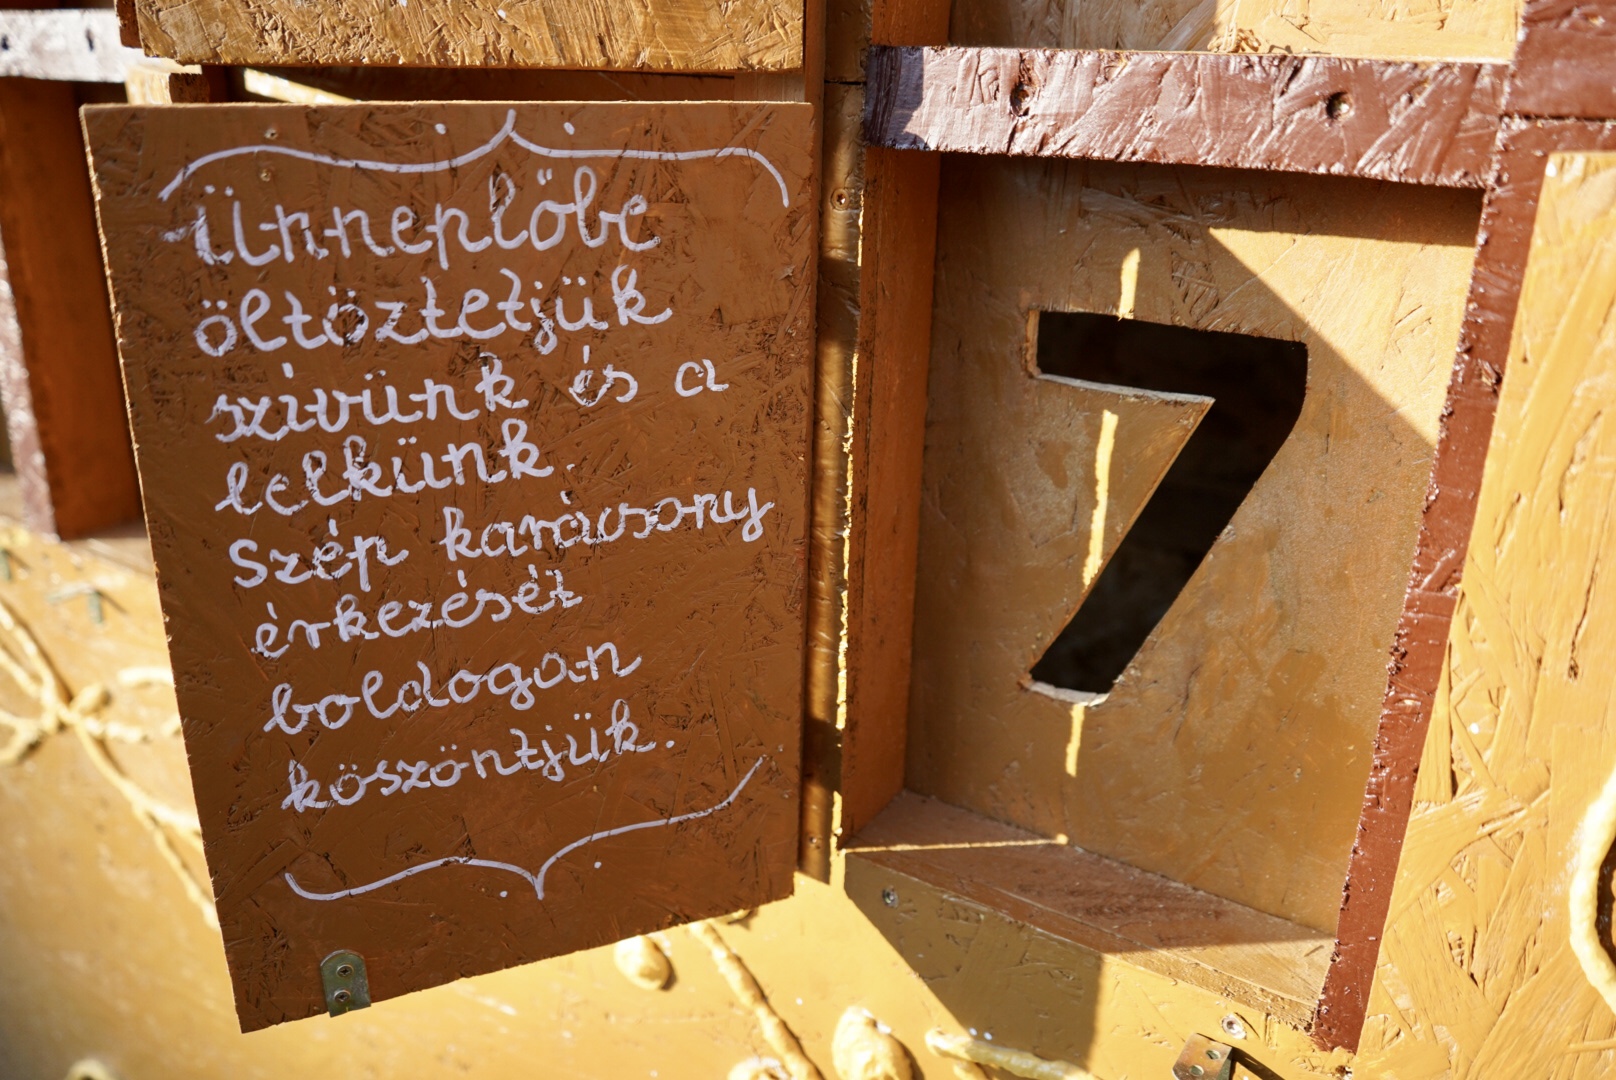 Ünneplőbe
öltöztetjük
szivünk és a
lelkünk.
Szép karácsony
érkezését
boldogan
köszöntjük.
7